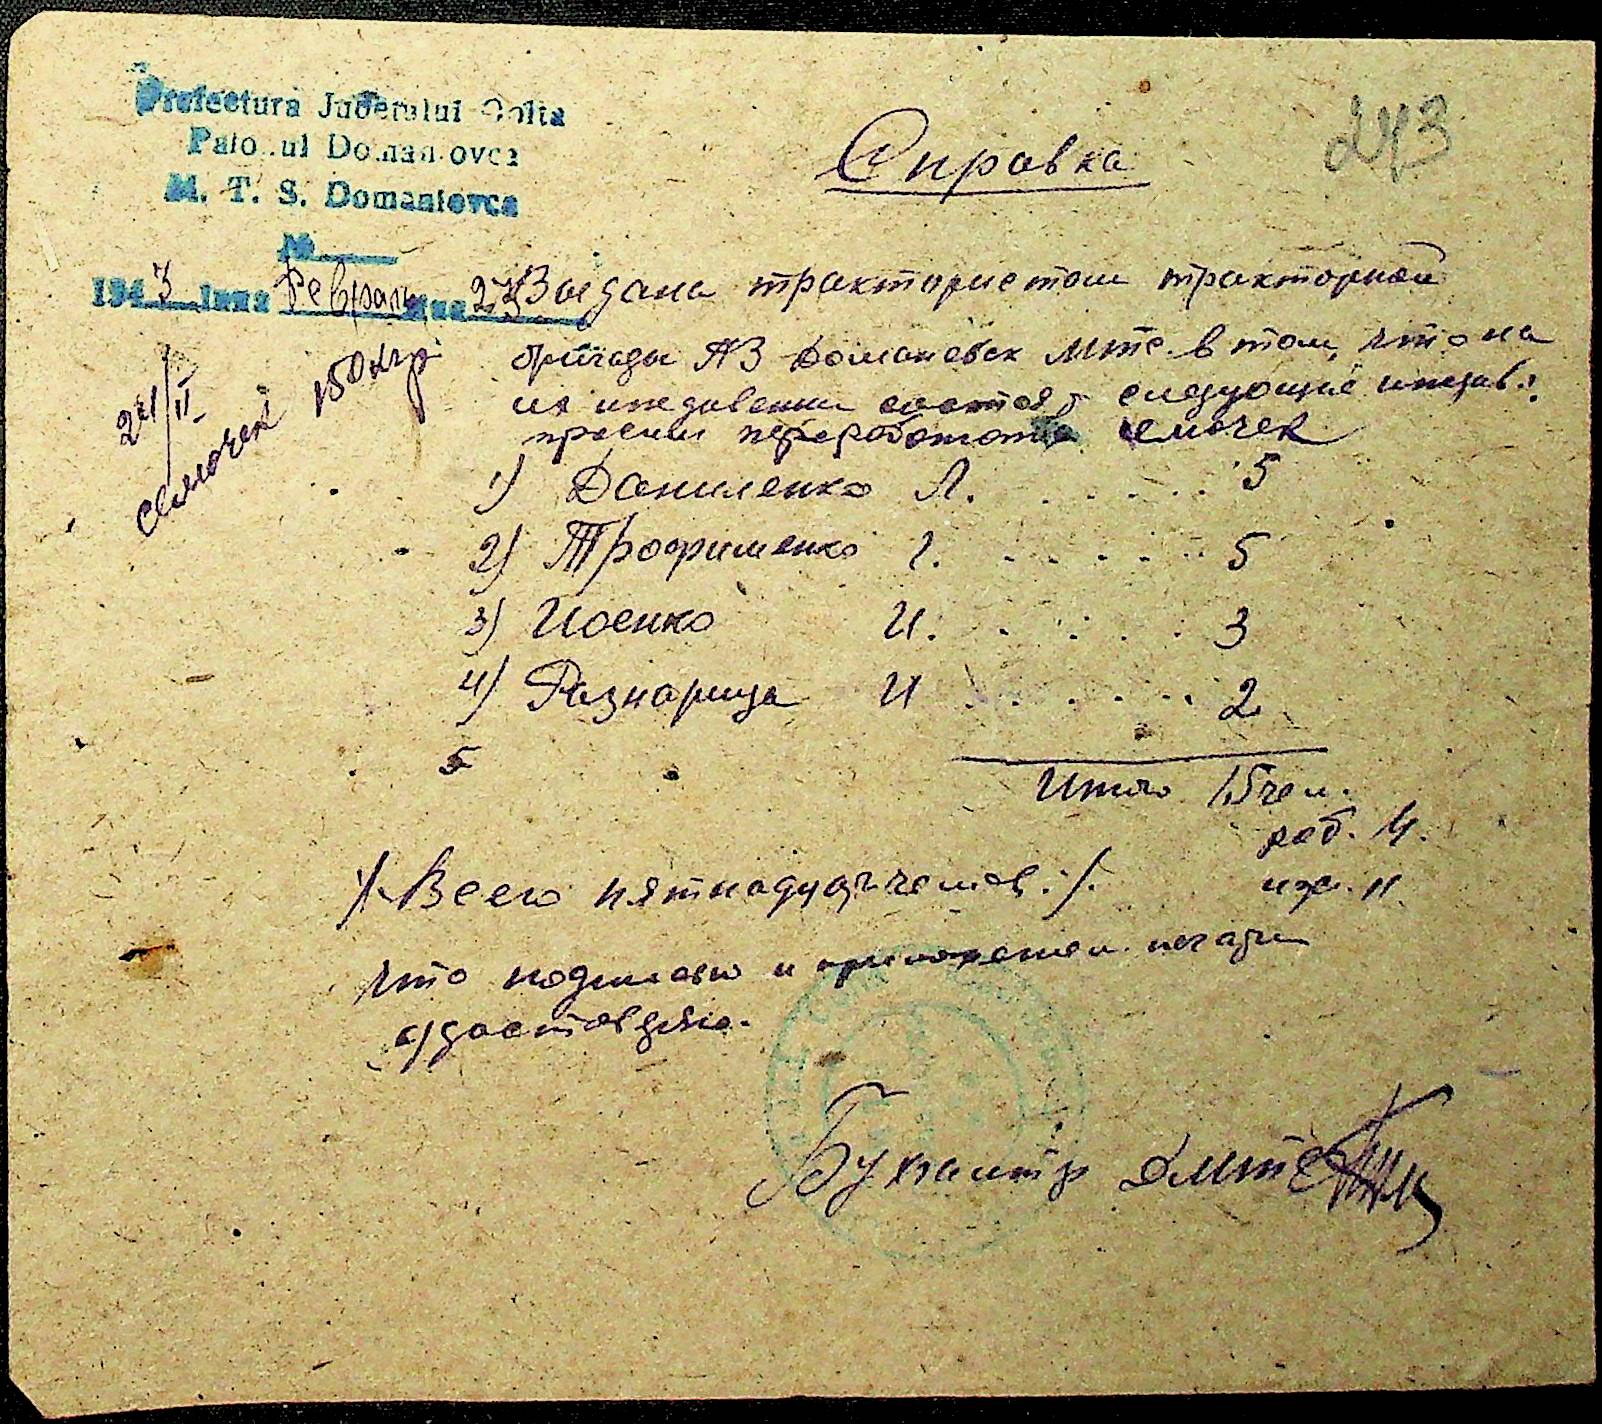 Prefectura Judetului Golta
Raionul Domaniovca
M. T. S. Domaniovca
№
Справка
243
1943 Luna Февраль Ziua 23
Выдана трактористам тракторной
бригады №3 Домановск Мтс. в том, что на
их иждевении состоят следующие иждив.:
просим переработать семечек
24/II
семечек 150 кгр
1) Даниленко Л. 5
2) Трофименко Г. 5
3) Иоенко И. 3
4) Разнарица И 2
5
Итого 15 чел.
раб. 4.
иж. 11
/. Всего пятнадцать челов. /.
Что подписью и приложением печати
удостоверяю.
Бухгалтер ДМТС